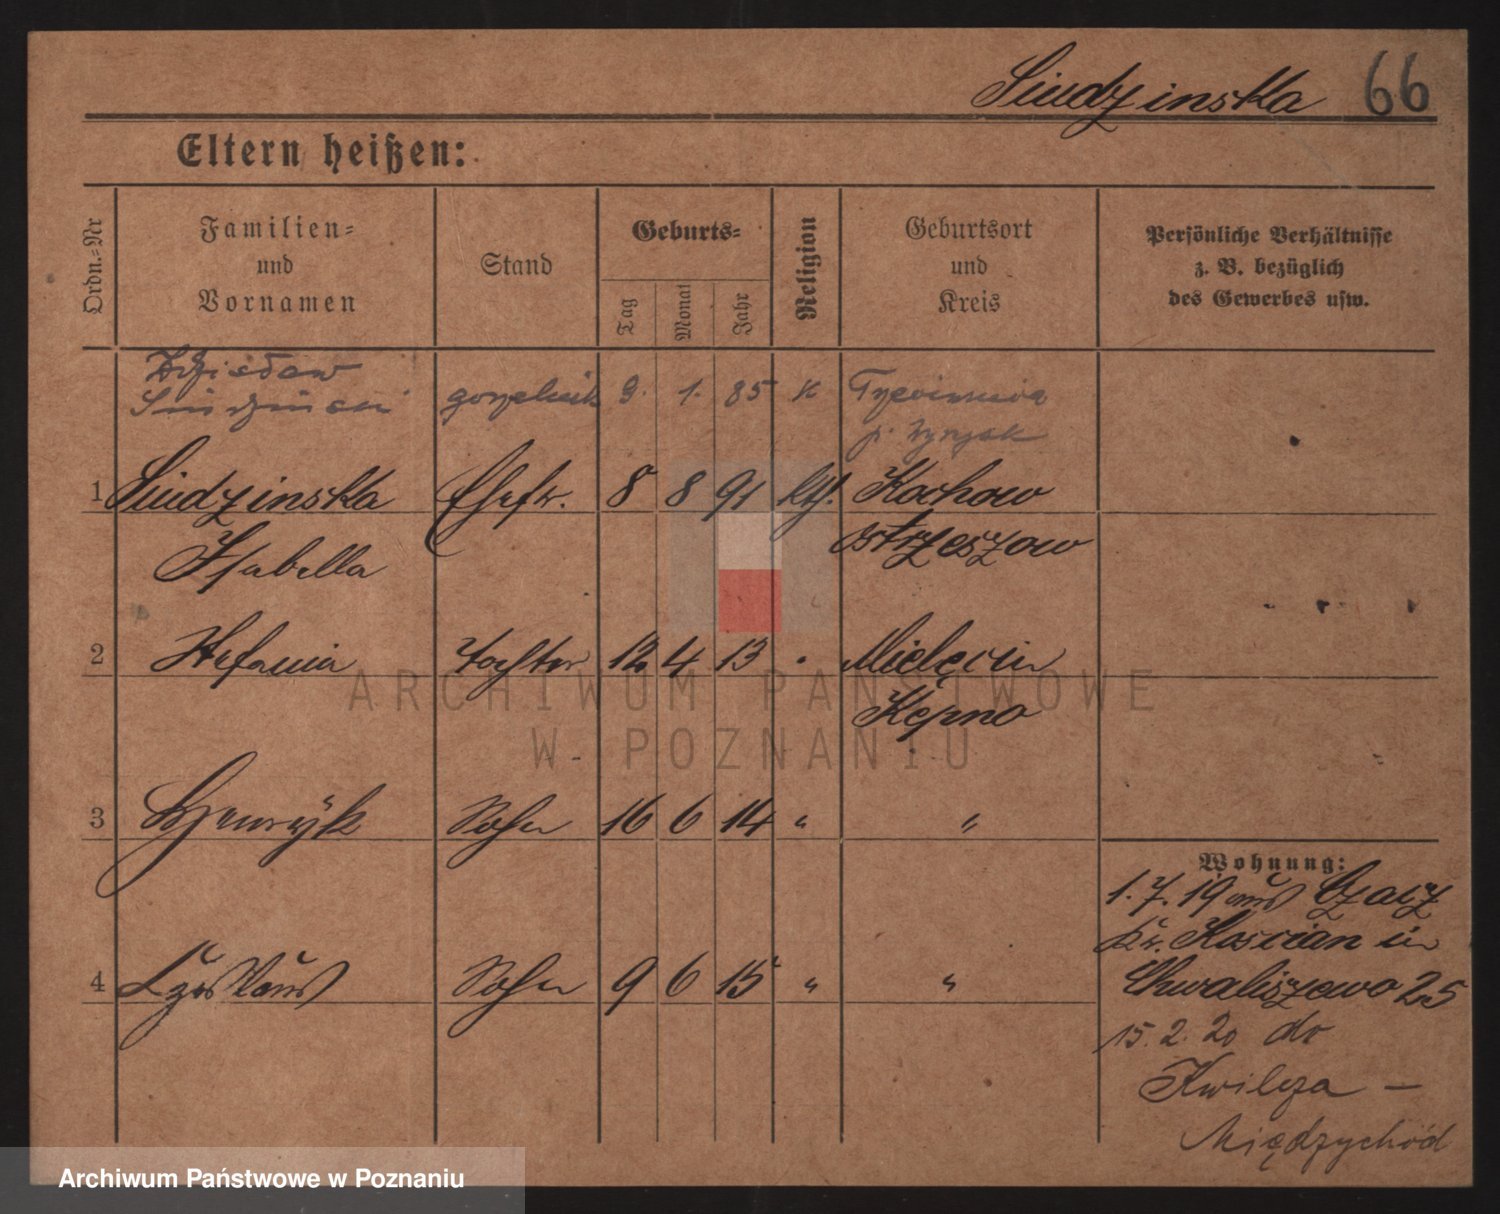 Siudzinska 66
Eltern heißen:
Ordn.-Nr
Familien-
und
Vornamen
Stand
Geburts-
Tag
Monat
Jahr
Religion
Geburtsort
und
Kreis
Persönliche Verhältnisse
z. B. bezüglich
des Gewerbes usw.
Zdzisław
gorzelnik 9. 1. 85 K
1 Siudzinska Ehefr. 8 8 91 kth. Kochow
Isabella Ostrzeszow
2 Stefania Tochter 12 4 13 " Mielęcin
Kępno
3 Henryk Sohn 16 6 14 " "
4 Sohn 9 6 15 " "
Wohnung:
1. 7. 19 aus Czacz
Kr. Koscian in
Chwaliszewo 25
15. 2. 20 do
Kwilcza —
Międzychód
ARCHIWUM PAŃSTWOWE
W POZNANIU
Archiwum Państwowe w Poznaniu